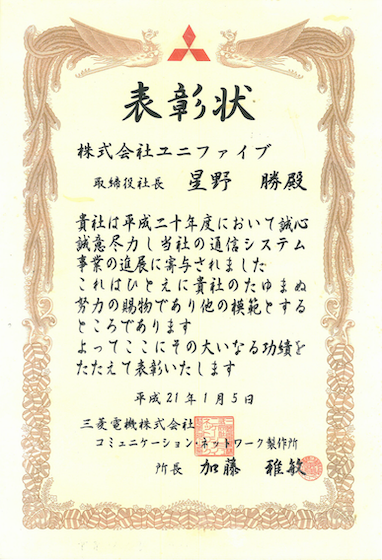 表彰状
株式会社ユニファイブ
取締役社長 星野 勝殿
貴社は平成二十年度において誠心
誠意尽力し当社の通信システム
事業の進展に寄与されました
これはひとえに貴社のたゆまぬ
努力の賜物であり他の模範とする
ところであります
よってここにその大いなる功績を
たたえて表彰いたします
平成21年1月5日
三菱電機株式会社
コミュニケーション・ネットワーク製作所
所長 加藤 雅敏